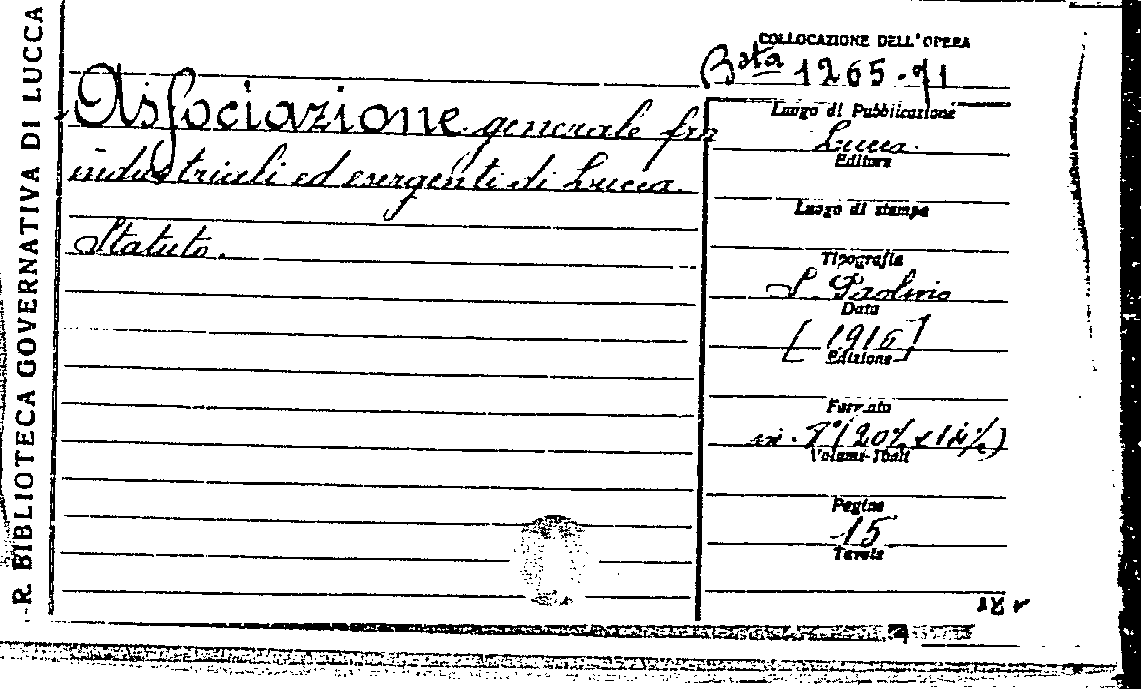 R. BIBLIOTECA GOVERNATIVA DI LUCCA
COLLOCAZIONE DELL'OPERA
Bsta 1265.71
Associazione generale fra
industriali ed esergenti di Lucca.
Statuto.
Luogo di Pubblicazione
Lucca.
Editore
Luogo di stampa
Tipografia
S. Paolino
Data
[1916]
Edizione
Formato
in
Volumi-Tomi
Pagine
15
Tavole